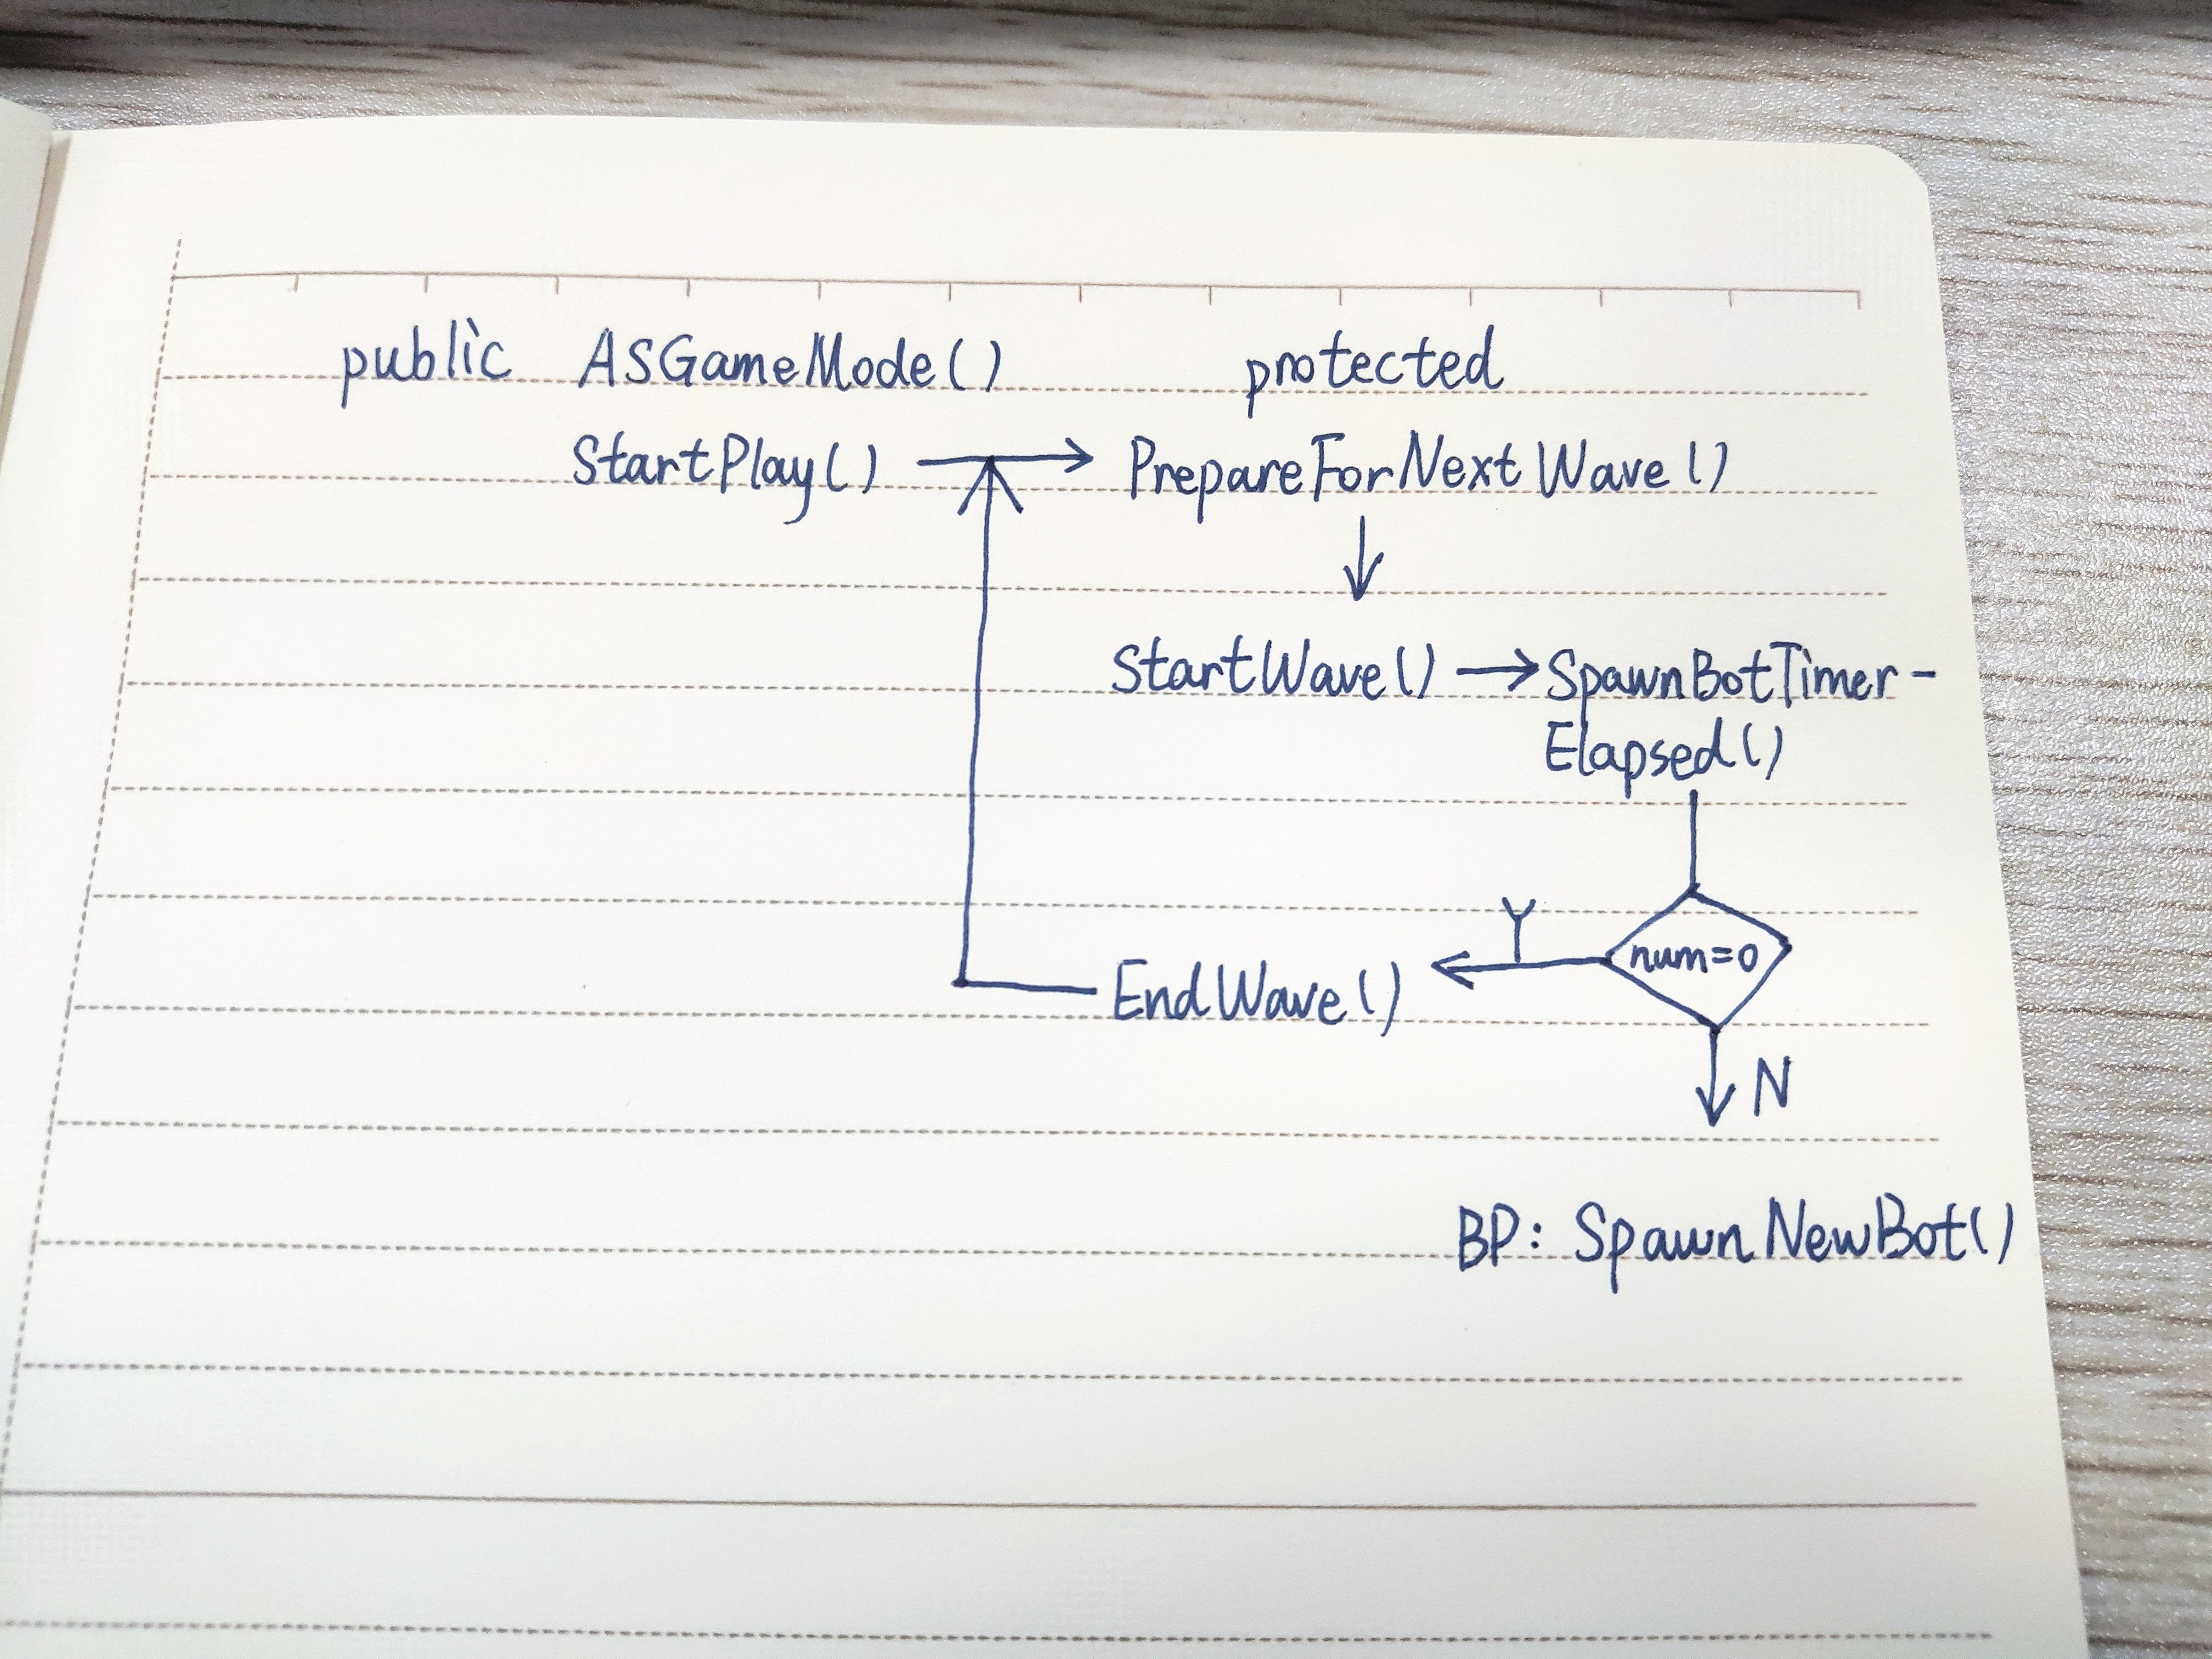 public ASGameMode() protected
StartPlay() → PrepareForNextWave()
StartWave() → SpawnBotTimer-
Elapsed()
Y
num=0
EndWave()
N
BP: SpawnNewBot()